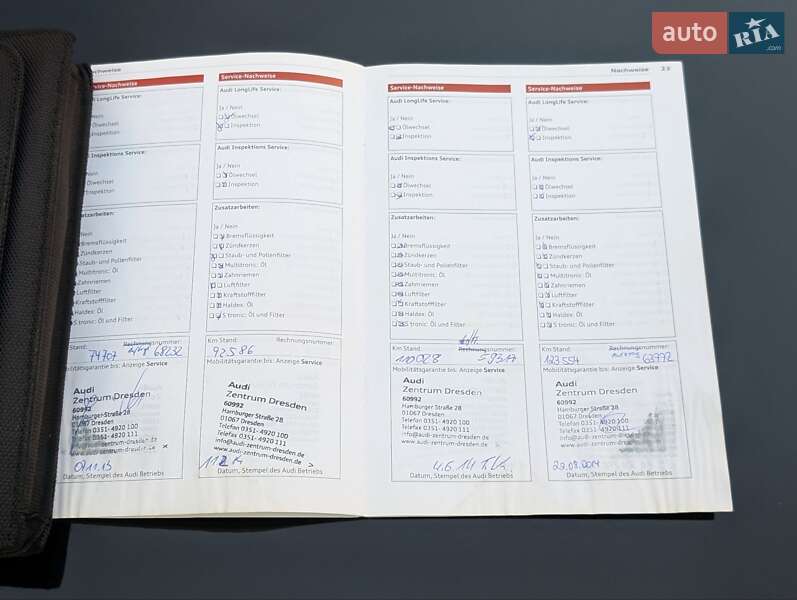 auto RIA .com
Nachweise
Service-Nachweise
Audi LongLife Service:
Nein
Ölwechsel
Inspektion
Audi Inspektions Service:
Nein
Ölwechsel
Inspektion
Zusatzarbeiten:
/ Nein
Bremsflüssigkeit
Zündkerzen
Staub- und Pollenfilter
Multitronic: Öl
Zahnriemen
Luftfilter
Kraftstofffilter
Haldex: Öl
S tronic: Öl und Filter
Stand: Rechnungsnummer:
74707 68232
Mobilitätsgarantie bis: Anzeige Service
Audi
Zentrum Dresden
60992
Hamburger Straße 28
01067 Dresden
Telefon 0351- 4920 100
Telefax 0351- 4920 111
info@audi-zentrum-dresden.de
www.audi-zentrum-dresden.de
Datum, Stempel des Audi Betriebs
Service-Nachweise
Audi LongLife Service:
Ja / Nein
Ölwechsel
Inspektion
Audi Inspektions Service:
Ja / Nein
Ölwechsel
Inspektion
Zusatzarbeiten:
Ja / Nein
Bremsflüssigkeit
Zündkerzen
Staub- und Pollenfilter
Multitronic: Öl
Zahnriemen
Luftfilter
Kraftstofffilter
Haldex: Öl
S tronic: Öl und Filter
Km Stand: Rechnungsnummer:
92586
Mobilitätsgarantie bis: Anzeige Service
Audi
Zentrum Dresden
60992
Hamburger Straße 28
01067 Dresden
Telefon 0351- 4920 100
Telefax 0351- 4920 111
info@audi-zentrum-dresden.de
www.audi-zentrum-dresden.de
Datum, Stempel des Audi Betriebs
Service-Nachweise
Audi LongLife Service:
Ja / Nein
Ölwechsel
Inspektion
Audi Inspektions Service:
Ja / Nein
Ölwechsel
Inspektion
Zusatzarbeiten:
Ja / Nein
Bremsflüssigkeit
Zündkerzen
Staub- und Pollenfilter
Multitronic: Öl
Zahnriemen
Luftfilter
Kraftstofffilter
Haldex: Öl
S tronic: Öl und Filter
Km Stand: Rechnungsnummer:
110028
Mobilitätsgarantie bis: Anzeige Service
Audi
Zentrum Dresden
60992
Hamburger Straße 28
01067 Dresden
Telefon 0351- 4920 100
Telefax 0351- 4920 111
info@audi-zentrum-dresden.de
www.audi-zentrum-dresden.de
4.6.14
Datum, Stempel des Audi Betriebs
Nachweise 23
Service-Nachweise
Audi LongLife Service:
Ja / Nein
Ölwechsel
Inspektion
Audi Inspektions Service:
Ja / Nein
Ölwechsel
Inspektion
Zusatzarbeiten:
Ja / Nein
Bremsflüssigkeit
Zündkerzen
Staub- und Pollenfilter
Multitronic: Öl
Zahnriemen
Luftfilter
Kraftstofffilter
Haldex: Öl
S tronic: Öl und Filter
Km Stand: Rechnungsnummer:
123554 63992
Mobilitätsgarantie bis: Anzeige Service
Audi
Zentrum Dresden
60992
Hamburger Straße 28
01067 Dresden
Telefon 0351- 4920 100
Telefax 0351- 4920 111
info@audi-zentrum-dresden.de
www.audi-zentrum-dresden.de
Datum, Stempel des Audi Betriebs